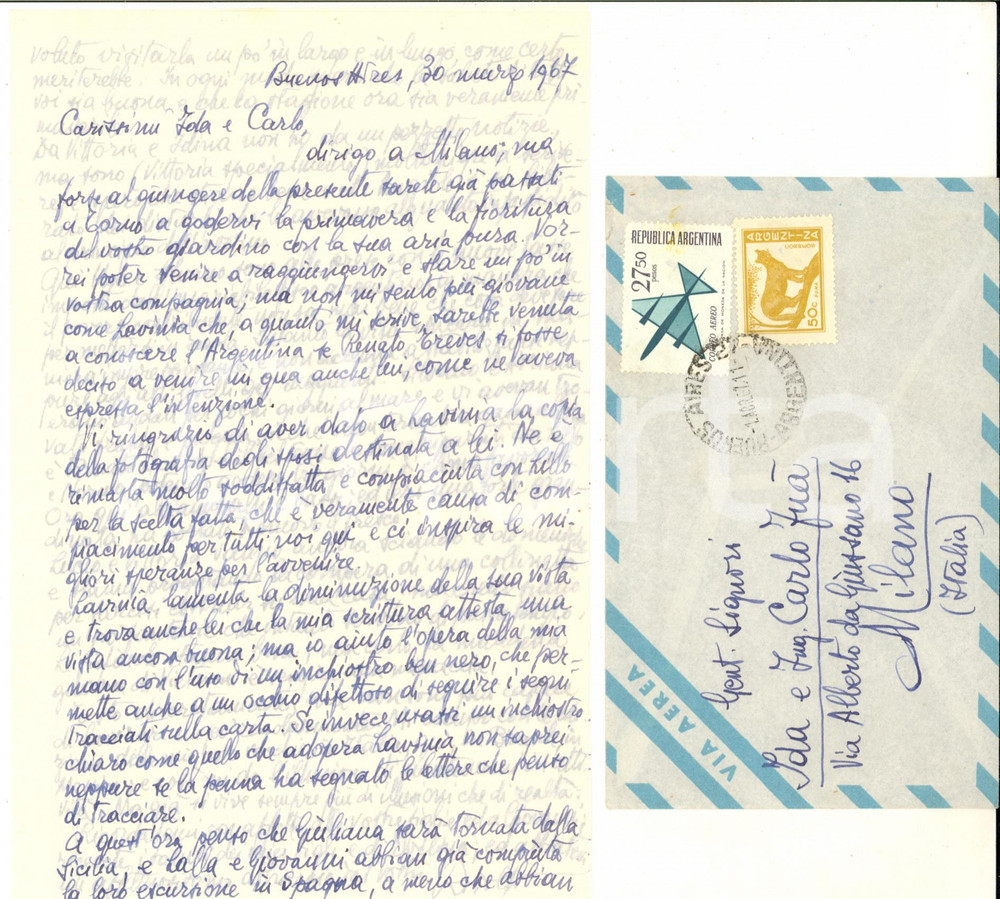 Buenos Aires, 30 marzo 1967
Carissimi Ida e Carlo,
dirigo a Milano; ma
forse al giungere della presente sarete già passati
a Torno a godervi la primavera e la fioritura
del vostro giardino con la sua aria pura. Vor-
rei poter venire a raggiungervi e stare un po' in
vostra compagnia; ma non mi sento più giovane
come Lavinia che, a quanto mi scrive, sarebbe venuta
a conoscere l'Argentina se Renato Treves si fosse
deciso a venire in qua anche lui, come ne aveva
espressa l'intenzione.
Vi ringrazio di aver dato a Lavinia la copia
della fotografia degli sposi destinata a lei. Ne è
rimasta molto soddisfatta e compiaciuta con
per la scelta fatta, che è veramente causa di com-
piacimento per tutti noi qui e ci inspira le mi-
gliori speranze per l'avvenire.
Lavinia lamenta la diminuzione della sua vista
e trova anche lei che la mia scrittura attesta una
vista ancora buona; ma io aiuto l'opera della mia
mano con l'uso di un inchiostro ben nero, che per-
mette anche a un occhio difettoso di seguire i segni
tracciati sulla carta. Se invece usassi un inchiostro
chiaro come quello che adopera Lavinia, non saprei
neppure se la penna ha segnato le lettere che penso
di tracciare.
A quest'ora penso che Giuliana sarà tornata dalla
Sicilia, e Lalla e Giovanni abbian già compiuta
la loro escursione in Spagna, a meno che abbian
REPUBLICA ARGENTINA
27.50
PESOS
CORREO AEREO
ARGENTINA
50c
BUENOS AIRES
VIA AEREA
Gent. Signori
Ida e Ing. Carlo Juà
Via Alberto da Giussano 16
Milano
(Italia)